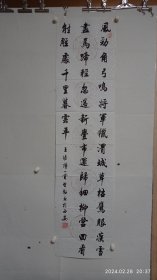 風勁角弓鳴將軍獵渭城草枯鷹眼疾雪
盡馬蹄輕忽過新豐市還歸細柳營回看
射雕處千里暮雲平
王維詩一首
2024.02.28